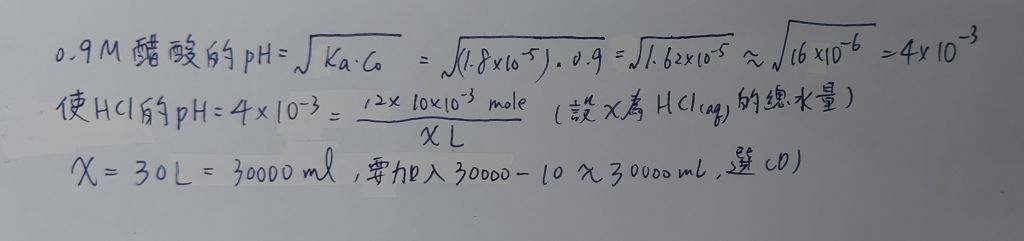 0.9M 醋酸的 pH = √Ka·C₀ = √(1.8×10⁻⁵)·0.9 = √1.62×10⁻⁵ ≈ √16×10⁻⁶ = 4×10⁻³
使HCl的pH = 4×10⁻³ = 12×10×10⁻³ mole / X L (設X為HCl(aq)的總水量)
X = 30L = 30000 ml, 要加入30000-10 ≈ 30000mL, 選(D)